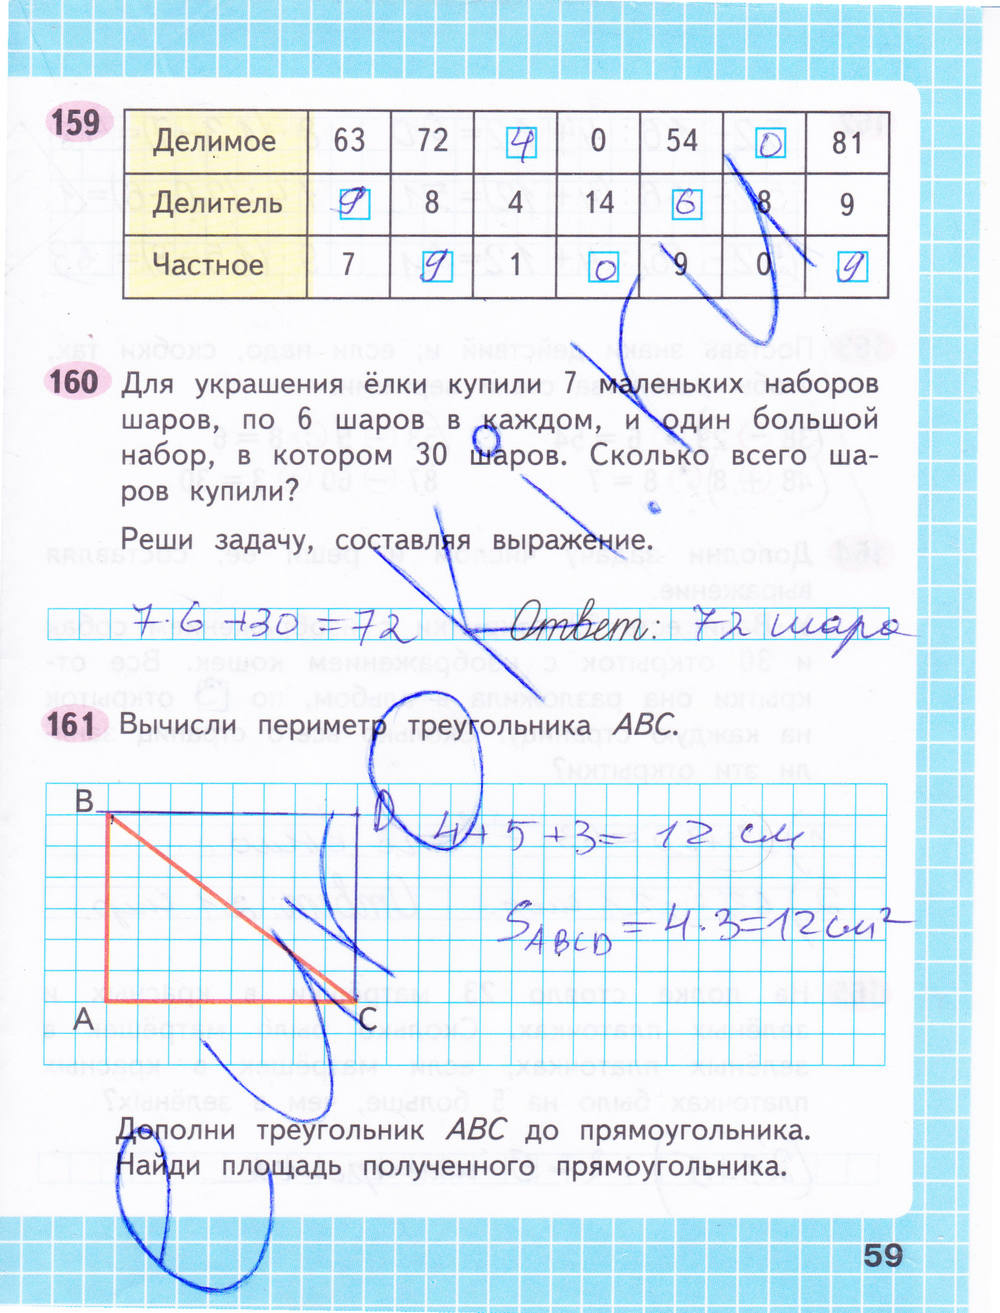 159
Делимое 63 72 4 0 54 0 81
Делитель 9 8 4 14 6 8 9
Частное 7 9 1 0 9 0 9
160 Для украшения ёлки купили 7 маленьких наборов
шаров, по 6 шаров в каждом, и один большой
набор, в котором 30 шаров. Сколько всего ша-
ров купили?
Реши задачу, составляя выражение.
7·6+30=72 Ответ: 72 шара
161 Вычисли периметр треугольника ABC.
B D
4+5+3=12 см
S ABCD = 4·3=12см²
A C
Дополни треугольник ABC до прямоугольника.
Найди площадь полученного прямоугольника.
59